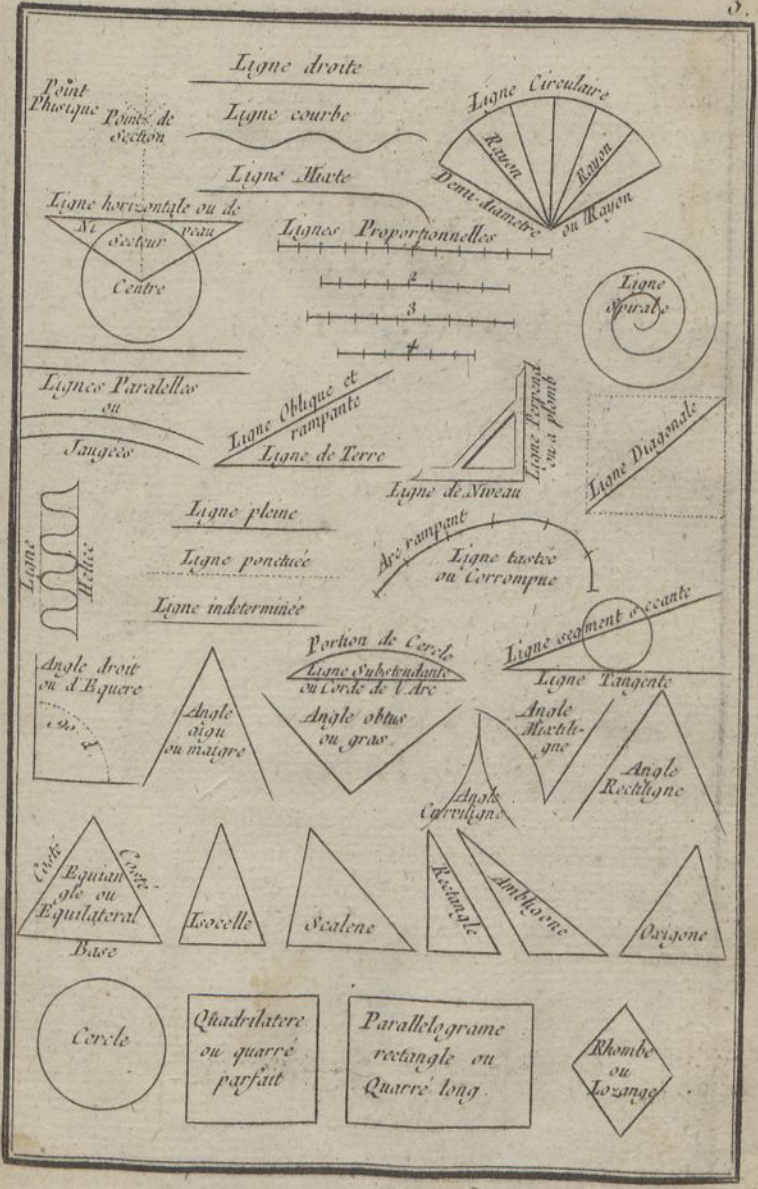 3.
Point
Phisique
Point de
Section
Ligne droite
Ligne courbe
Ligne Mixte
Ligne Circulaire
Rayon
Rayon
Demi-diametre
ou Rayon
Ligne horizontale ou de
Ni veau
Secteur
Centre
Lignes Proportionnelles
2
3
4
Ligne
Spirale
Lignes Paralelles
ou
Jaugées
Ligne Oblique et
rampante
Ligne de Terre
Ligne Perpend.
ou à plomb
Ligne de Niveau
Ligne Diagonale
Ligne
Helice
Ligne pleine
Ligne ponctuée
Ligne indeterminée
Arc rampant
Ligne tastée
ou Corrompue
Portion de Cercle
Ligne Substendante
ou Corde de l'Arc
Ligne segment secante
Ligne Tangente
Angle droit
ou d'Equere
90. d.
Angle
aigu
ou maigre
Angle obtus
ou gras.
Angle
Curviligne
Angle
Mixtili-
gne
Angle
Rectiligne
Costé
Costé
Equian
gle ou
Equilateral
Base
Isocelle
Scalene
Rectangle
Ambligone
Oxigone
Cercle
Quadrilatere
ou quarré
parfait
Parallelograme
rectangle ou
Quarré long.
Rhombe
ou
Lozange